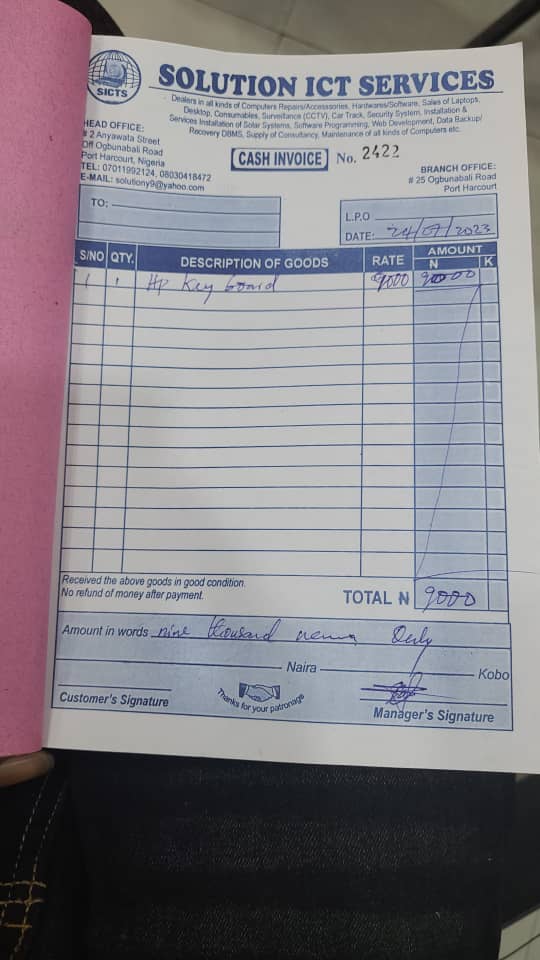 SICTS
SOLUTION ICT SERVICES
Dealers in all kinds of Computers Repairs/Accesssories, Hardwares/Software, Sales of Laptops,
Desktop, Consumables, Surveillance (CCTV), Car Track, Security System, Installation &
Services Installation of Solar Systems, Software Programming, Web Development, Data Backup/
Recovery DBMS, Supply of Consultancy, Maintenance of all kinds of Computers etc.
HEAD OFFICE:
# 2 Anyawata Street
Off Ogbunabali Road
Port Harcourt, Nigeria
TEL: 07011992124, 08030418472
E-MAIL: solutiony9@yahoo.com
CASH INVOICE No. 2422
BRANCH OFFICE:
# 25 Ogbunabali Road
Port Harcourt
TO:
L.P.O
DATE: 24/07/2023
S/NO QTY. DESCRIPTION OF GOODS RATE AMOUNT
N K
1 1 Hp Key board 9000 9000
Received the above goods in good condition.
No refund of money after payment.
TOTAL N 9000
Amount in words nine thousand only
Naira Kobo
Customer's Signature
Thanks for your patronage
Manager's Signature